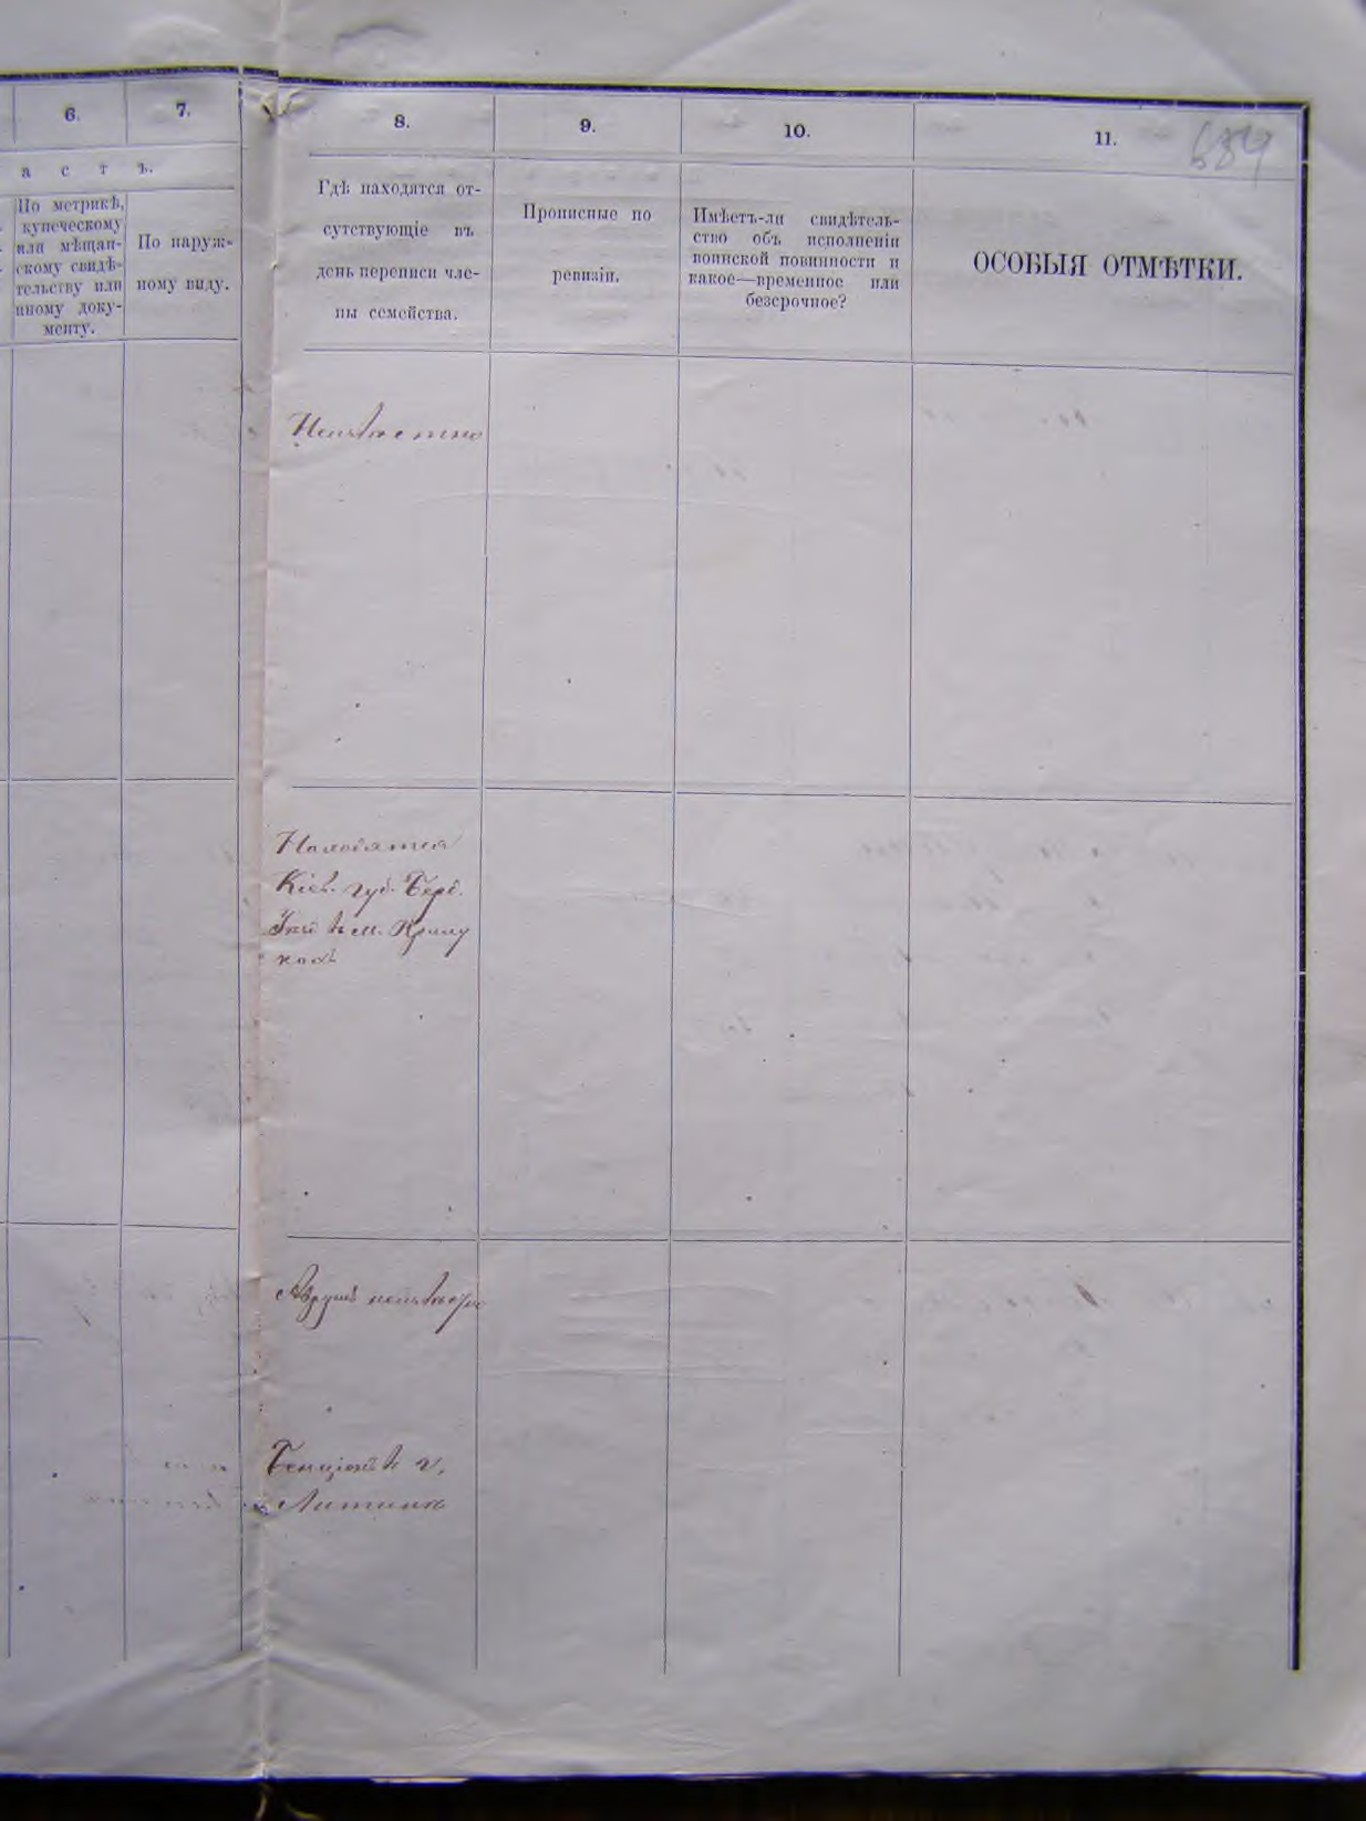 6.
7.
8.
9.
10.
11.
684
а с т ъ.
По метрикѣ,
купеческому
или мѣщан-
скому свидѣ-
тельству или
иному доку-
менту.
По наруж-
ному виду.
Гдѣ находятся от-
сутствующіе въ
день переписи чле-
ны семейства.
Прописные по
ревизіи.
Имѣетъ-ли свидѣтель-
ство объ исполненіи
воинской повинности и
какое—временное или
безсрочное?
ОСОБЫЯ ОТМѢТКИ.
Неизвѣстно
Находятся
Кіев. губ. Берд.
въ м.
Неизвѣстно
Бенціонъ в г.
Литинѣ